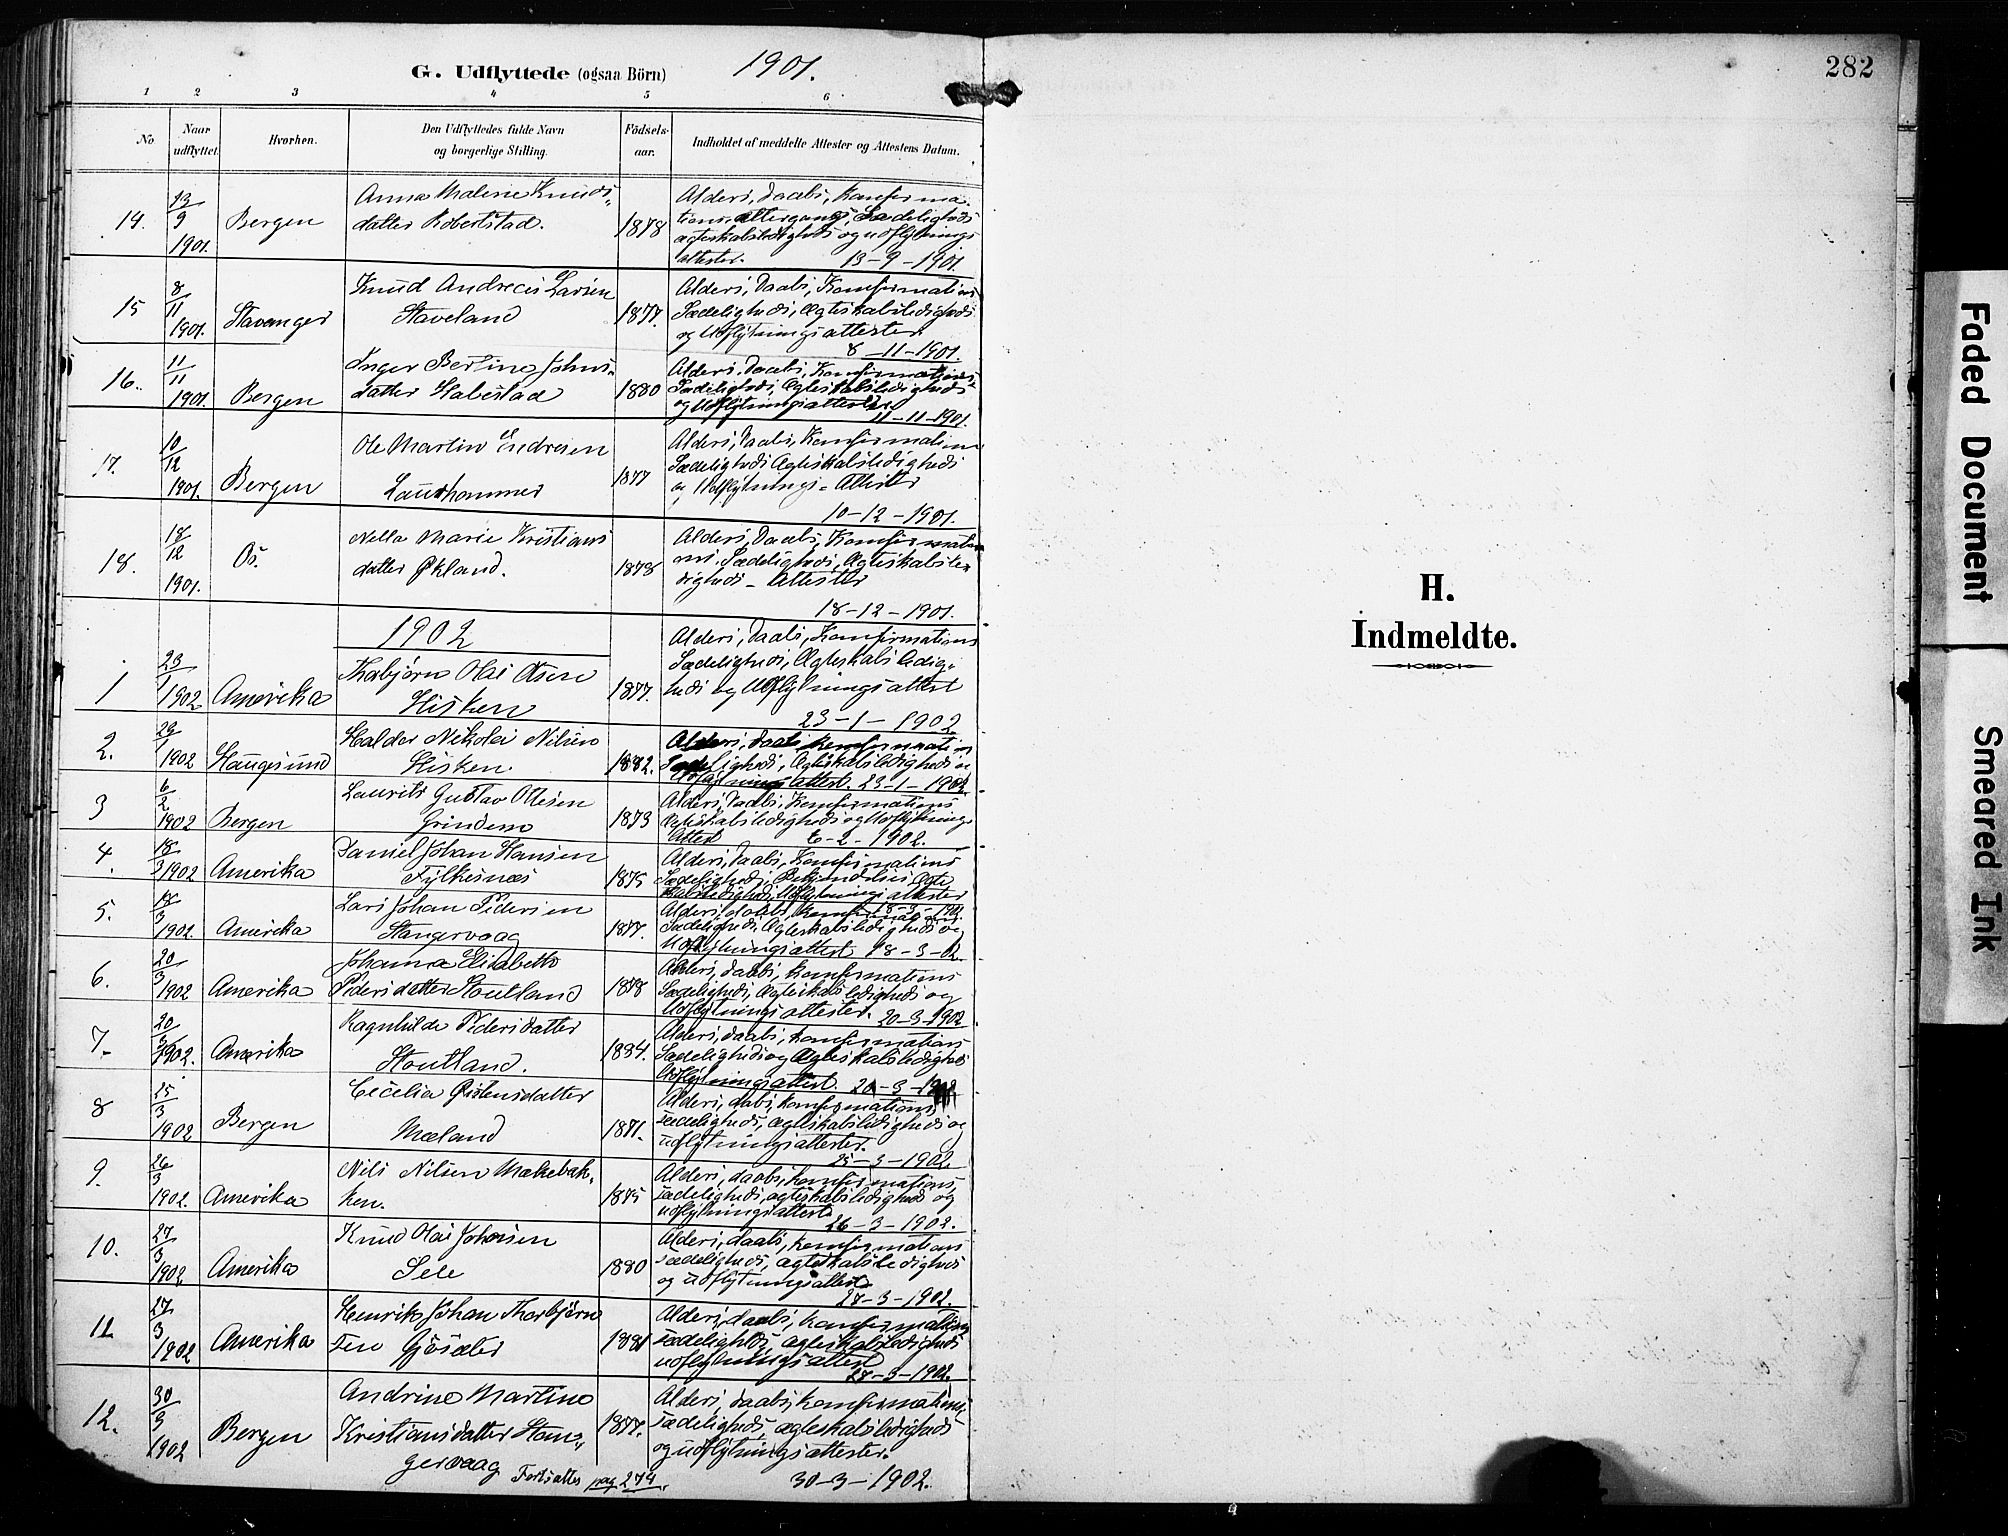 G. Udflyttede (ogsaa Börn) 1901.
1 2 3 4 5 6
No. Naar udflyttet. Hvorhen. Den Udflyttedes fulde Navn og borgerlige Stilling. Födsels-aar. Indholdet af meddelte Attester og Attestens Datum.
14. 13/9 1901. Bergen Anna Malene Knuds-
datter Robertstad. 1878 Alders, Daabs, Konfirma-
tions, altergangs, Sædeligheds
ægteskabsledigheds og udflytnings
attester. 13-9-1901.
15 8/11 1901. Stavanger Knud Andreas Larsen
Staveland 1877. Alders, Daabs, Konfirmations
Sædeligheds, Ægteskabsledigheds
og Udflytningsattester.
8-11-1901.
16. 11/11 1901. Bergen Inger Bertine Johns-
datter Habestad 1880 Alders, Daabs, Konfirmations
Sædeligheds, Ægteskabsledigheds
og Udflytningsattester.
11-11-1901.
17. 10/12 1901. Bergen Ole Martin Endresen
Laurhammer 1877 Alders, Daabs, Konfirmations
Sædeligheds Ægteskabsledigheds
og Udflytnings-Attester
10-12-1901.
18. 18/12 1901. Os. Nella Marie Kristians
datter Økland. 1878 Alders, Daabs, Konfirmatio
ns. Sædeligheds, Ægteskabsle-
digheds-Attester
18-12-1901.
1902
1 23/1 1902 Amerika Thorbjørn Olai Olsen
Hisken 1877. Alders, Daabs, Konfirmations
Sædeligheds, Ægteskabs ledig-
heds og Udflytningsattest
23-1-1902
2. 29/1 1902 Haugesund Haldor Nikolai Nilsen
Hisken. 1882. Alders, Daabs Konfirmation
Sædeligheds, Ægteskabsledigheds og
Udflytningsattest. 23-1-1902.
3 6/2 1902 Bergen Laurits Gustav Ottesen
Grindem 1873 Alders, Daabs, Konfirmations
Ægteskabsledigheds og Udflytnings
Attest 6-2-1902.
4. 18/3 1902 Amerika Daniel Johan Hansen
Fylkesnæs 1875 Alders, Daabs, Konfirmations
Sædeligheds, Ægte
skabsledigheds, Udflytningsattester
18-3-1902
5. 18/3 1902. Amerika Lars Johan Pedersen
Stangervaag 1877. Alders, daabs, Konfirmations
Sædeligheds, Ægteskabsledigheds og
Udflytningsattest 18-3-02.
6. 20/3 1902 Amerika Johanna Elisabeth
Pedersdatter Stoutland 1878 Alders, Daabs, Konfirmations
Sædeligheds, Ægteskabsledigheds og
Udflytningsattester. 20-3-1902
7. 20/3 1902. Amerika Ragnhilde Pedersdatter
Stoutland. 1884. Alders, Daabs, Konfirmations
Sædeligheds og Ægteskabsledigheds
Udflytningsattest. 20-3-1902
8 25/3 1902 Bergen Cecelia Østensdatter
Mæland 1871. Alders, daabs, konfirmations,
sædeligheds, ægteskabsledigheds og
udflytningsattester.
25-3-1902.
9. 26/3 1902. Amerika Nils Nilsen Mækebak-
ken. 1875 Alders, daabs, konfirmations,
sædeligheds, ægteskabsledigheds og
udflytningsattest.
26-3-1902.
10. 27/3 1902 Amerika Knud Olai Johnsen
Sele 1880 Alders, daabs, konfirmations
sædeligheds, ægteskabsledigheds
og udflytningsattest
27-3-1902.
11 27/3 1902 Amerika Henrik Johan Thorbjørn
sen Gjøsæter 1881 Alders, daabs, konfirmations
sædeligheds, ægteskabsledigheds
udflytningsattest
27-3-1902.
12. 30/3 1902 Bergen Andrine Martine
Kristiansdatter Stan-
gervaag 1877. Alders, daabs, konfirmations,
sædeligheds, ægteskabsledigheds
og udflytningsattester.
Fortsættes pag 274. 30-3-1902.
282
H.
Indmeldte.
Faded Document
Smeared Ink